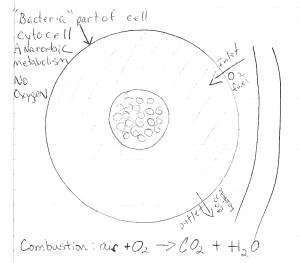 "Bacteria" part of cell
Cytocell
Anaerobic
metabolism
No
Oxygen
inlet
O2
fuel
outlet
Combustion: air + O2 -> CO2 + H2O